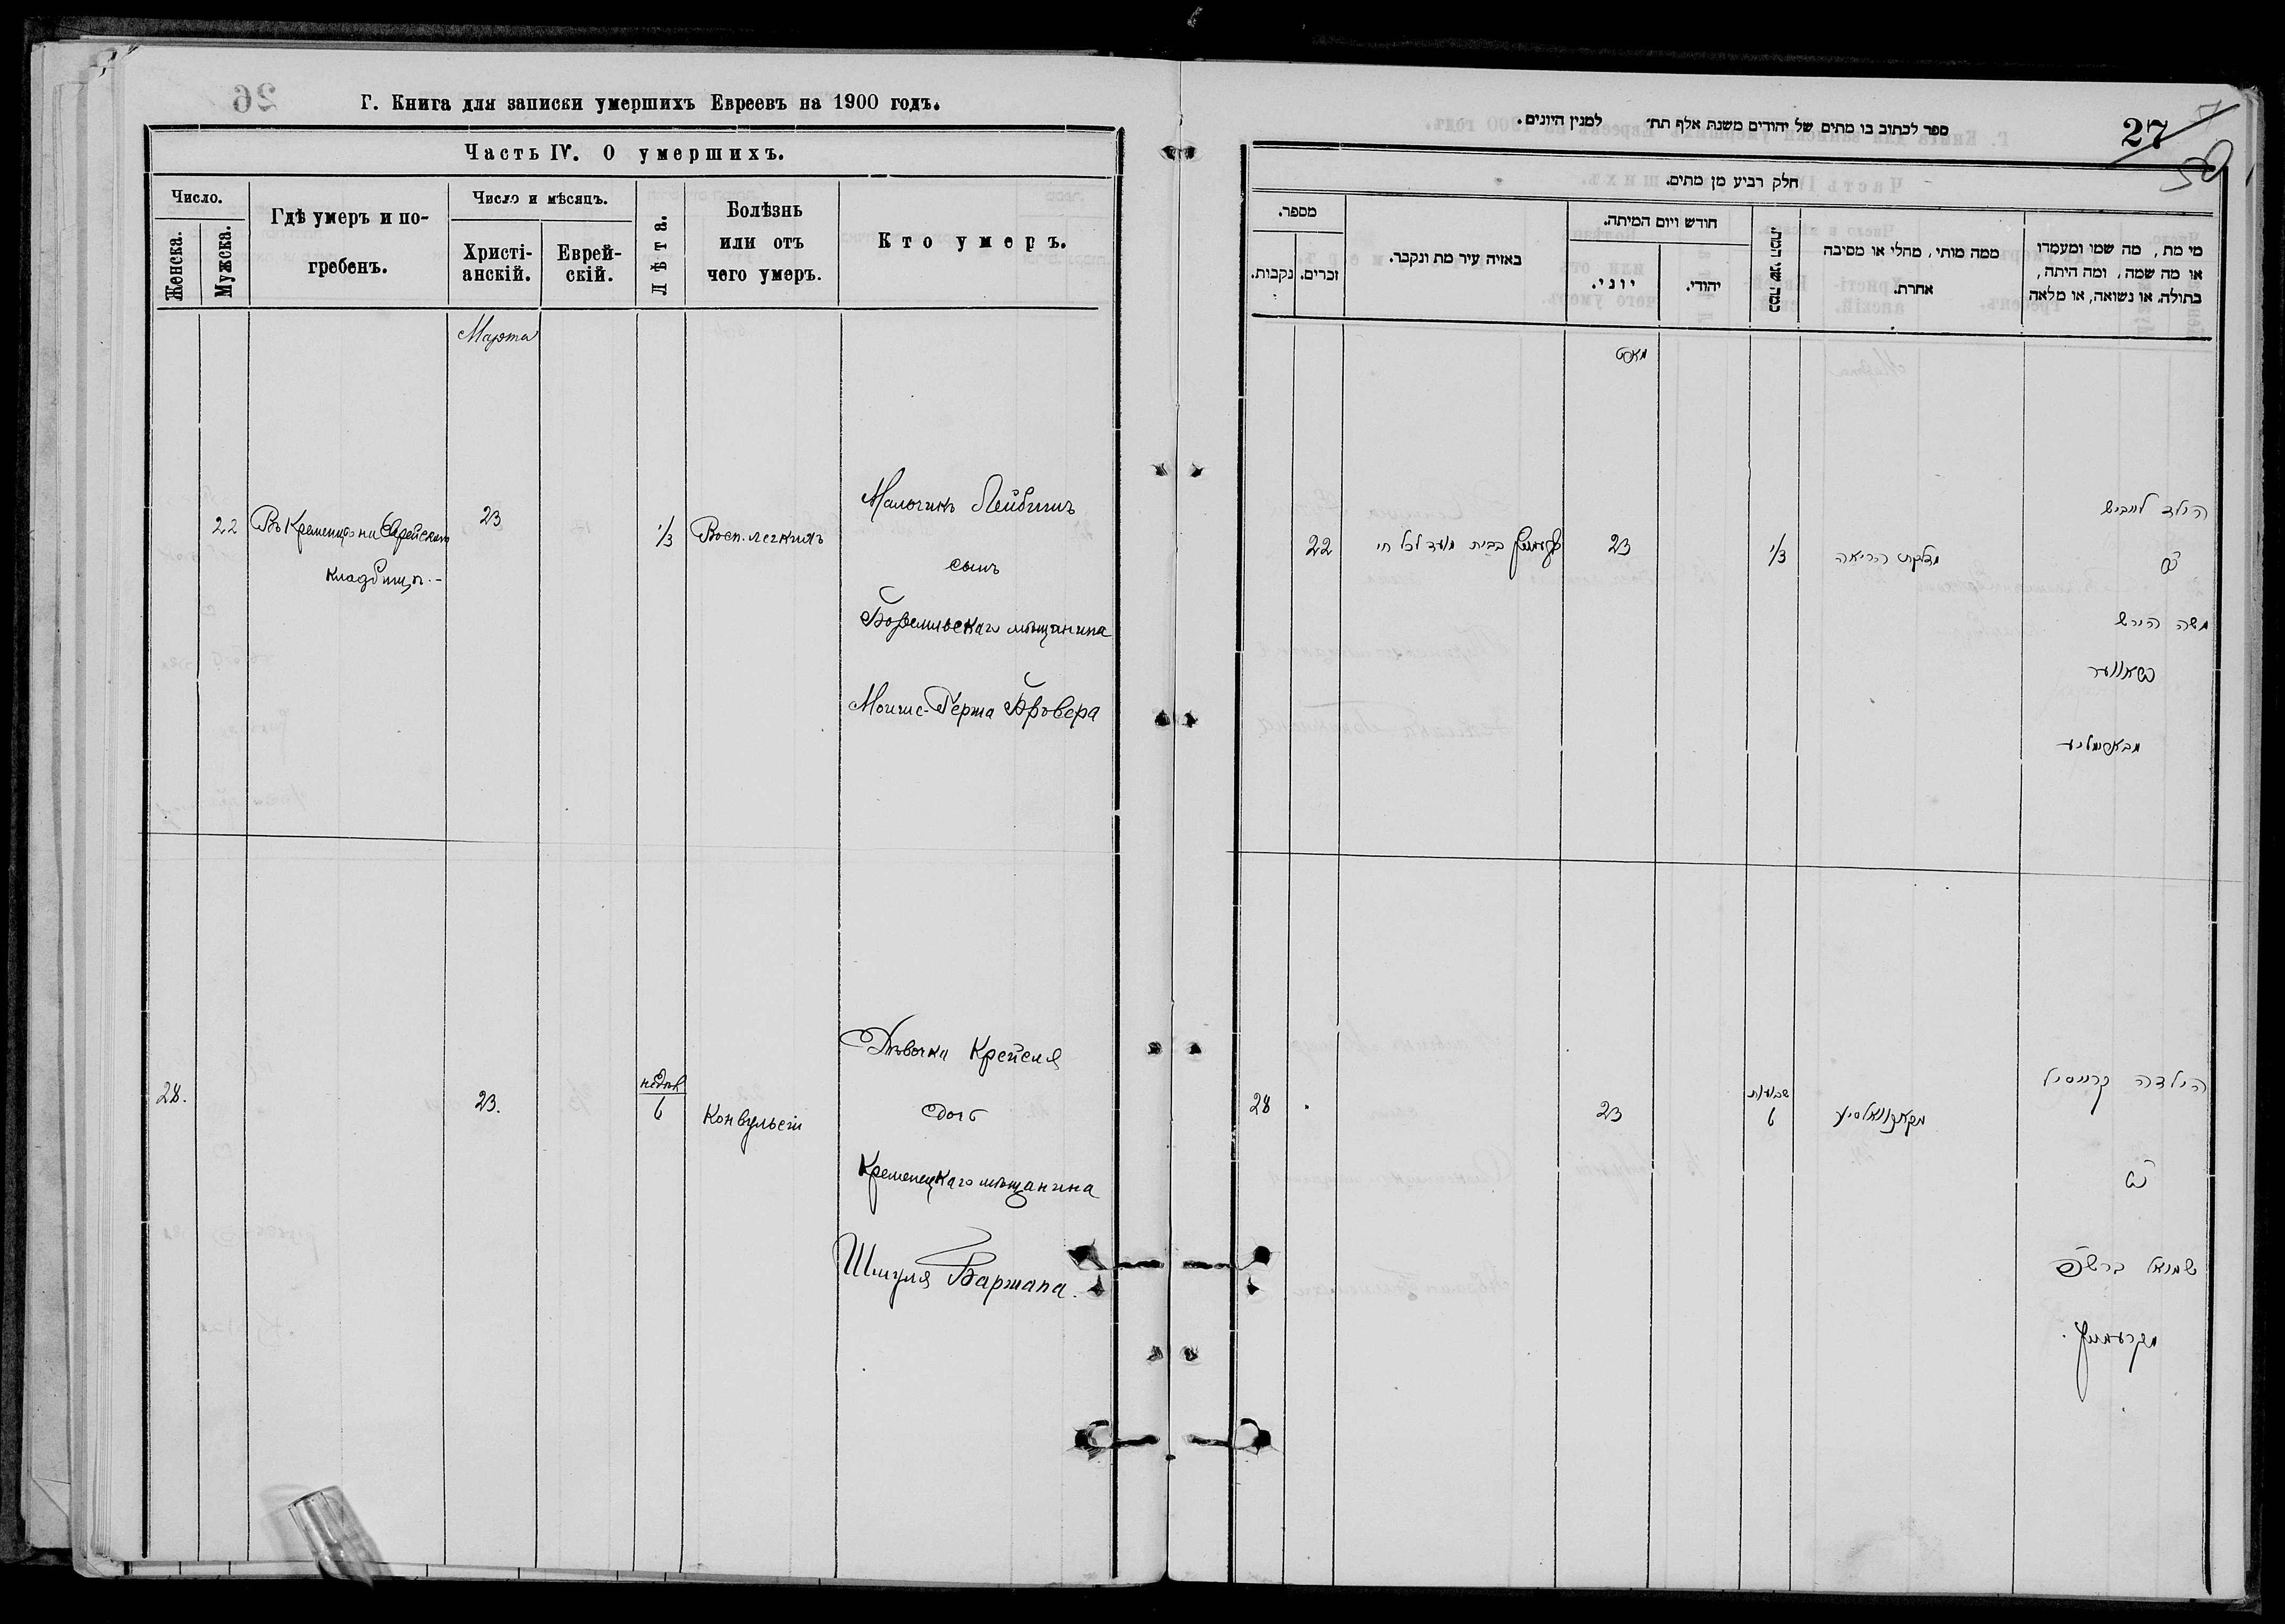 Г. Книга для записки умершихъ Евреевъ на 1900 годъ.
Часть IV. О умершихъ.
Число.
Женска.
Мужска.
Гдѣ умеръ и по-
гребенъ.
Число и мѣсяцъ.
Христі-
анскій.
Еврей-
скій.
Лѣта.
Болѣзнь
или отъ
чего умеръ.
Кто умеръ.
Марта
22
Въ Кременцѣ на Еврейскомъ
кладбищѣ.-
23
1/3
Восп. легкихъ
Мальчикъ Лейбишъ
сынъ
Боремльскаго мѣщанина
Моише-Герша Бровера
28.
23.
недѣл
6
Конвульсіи
Дѣвочка Крейсля
дочь
Кременецкаго мѣщанина
Шмуля Баршапа.
27
50
ספר לכתוב בו מתים של יהודים משנת אלף תת׳ למנין היונים.
חלק רביע מן מתים.
מספר.
נקבות.
זכרים.
באיזה עיר מת ונקבר.
חודש ויום המיתה.
יוני.
יהודי.
כמה שני המת.
ממה מותי, מחלי או מסיבה
אחרת.
מי מת, מה שמו ומעמדו
או מה שמה, ומה היתה,
בתולה, או נשואה, או מלאה
מארט
22
בבית מועד לכל חי
23
1/3
מדלקת הריאה
הילד לייביש
משה הירש
28
23
שבועות
6
הילדה קרייסיל
שמואל ברשפ